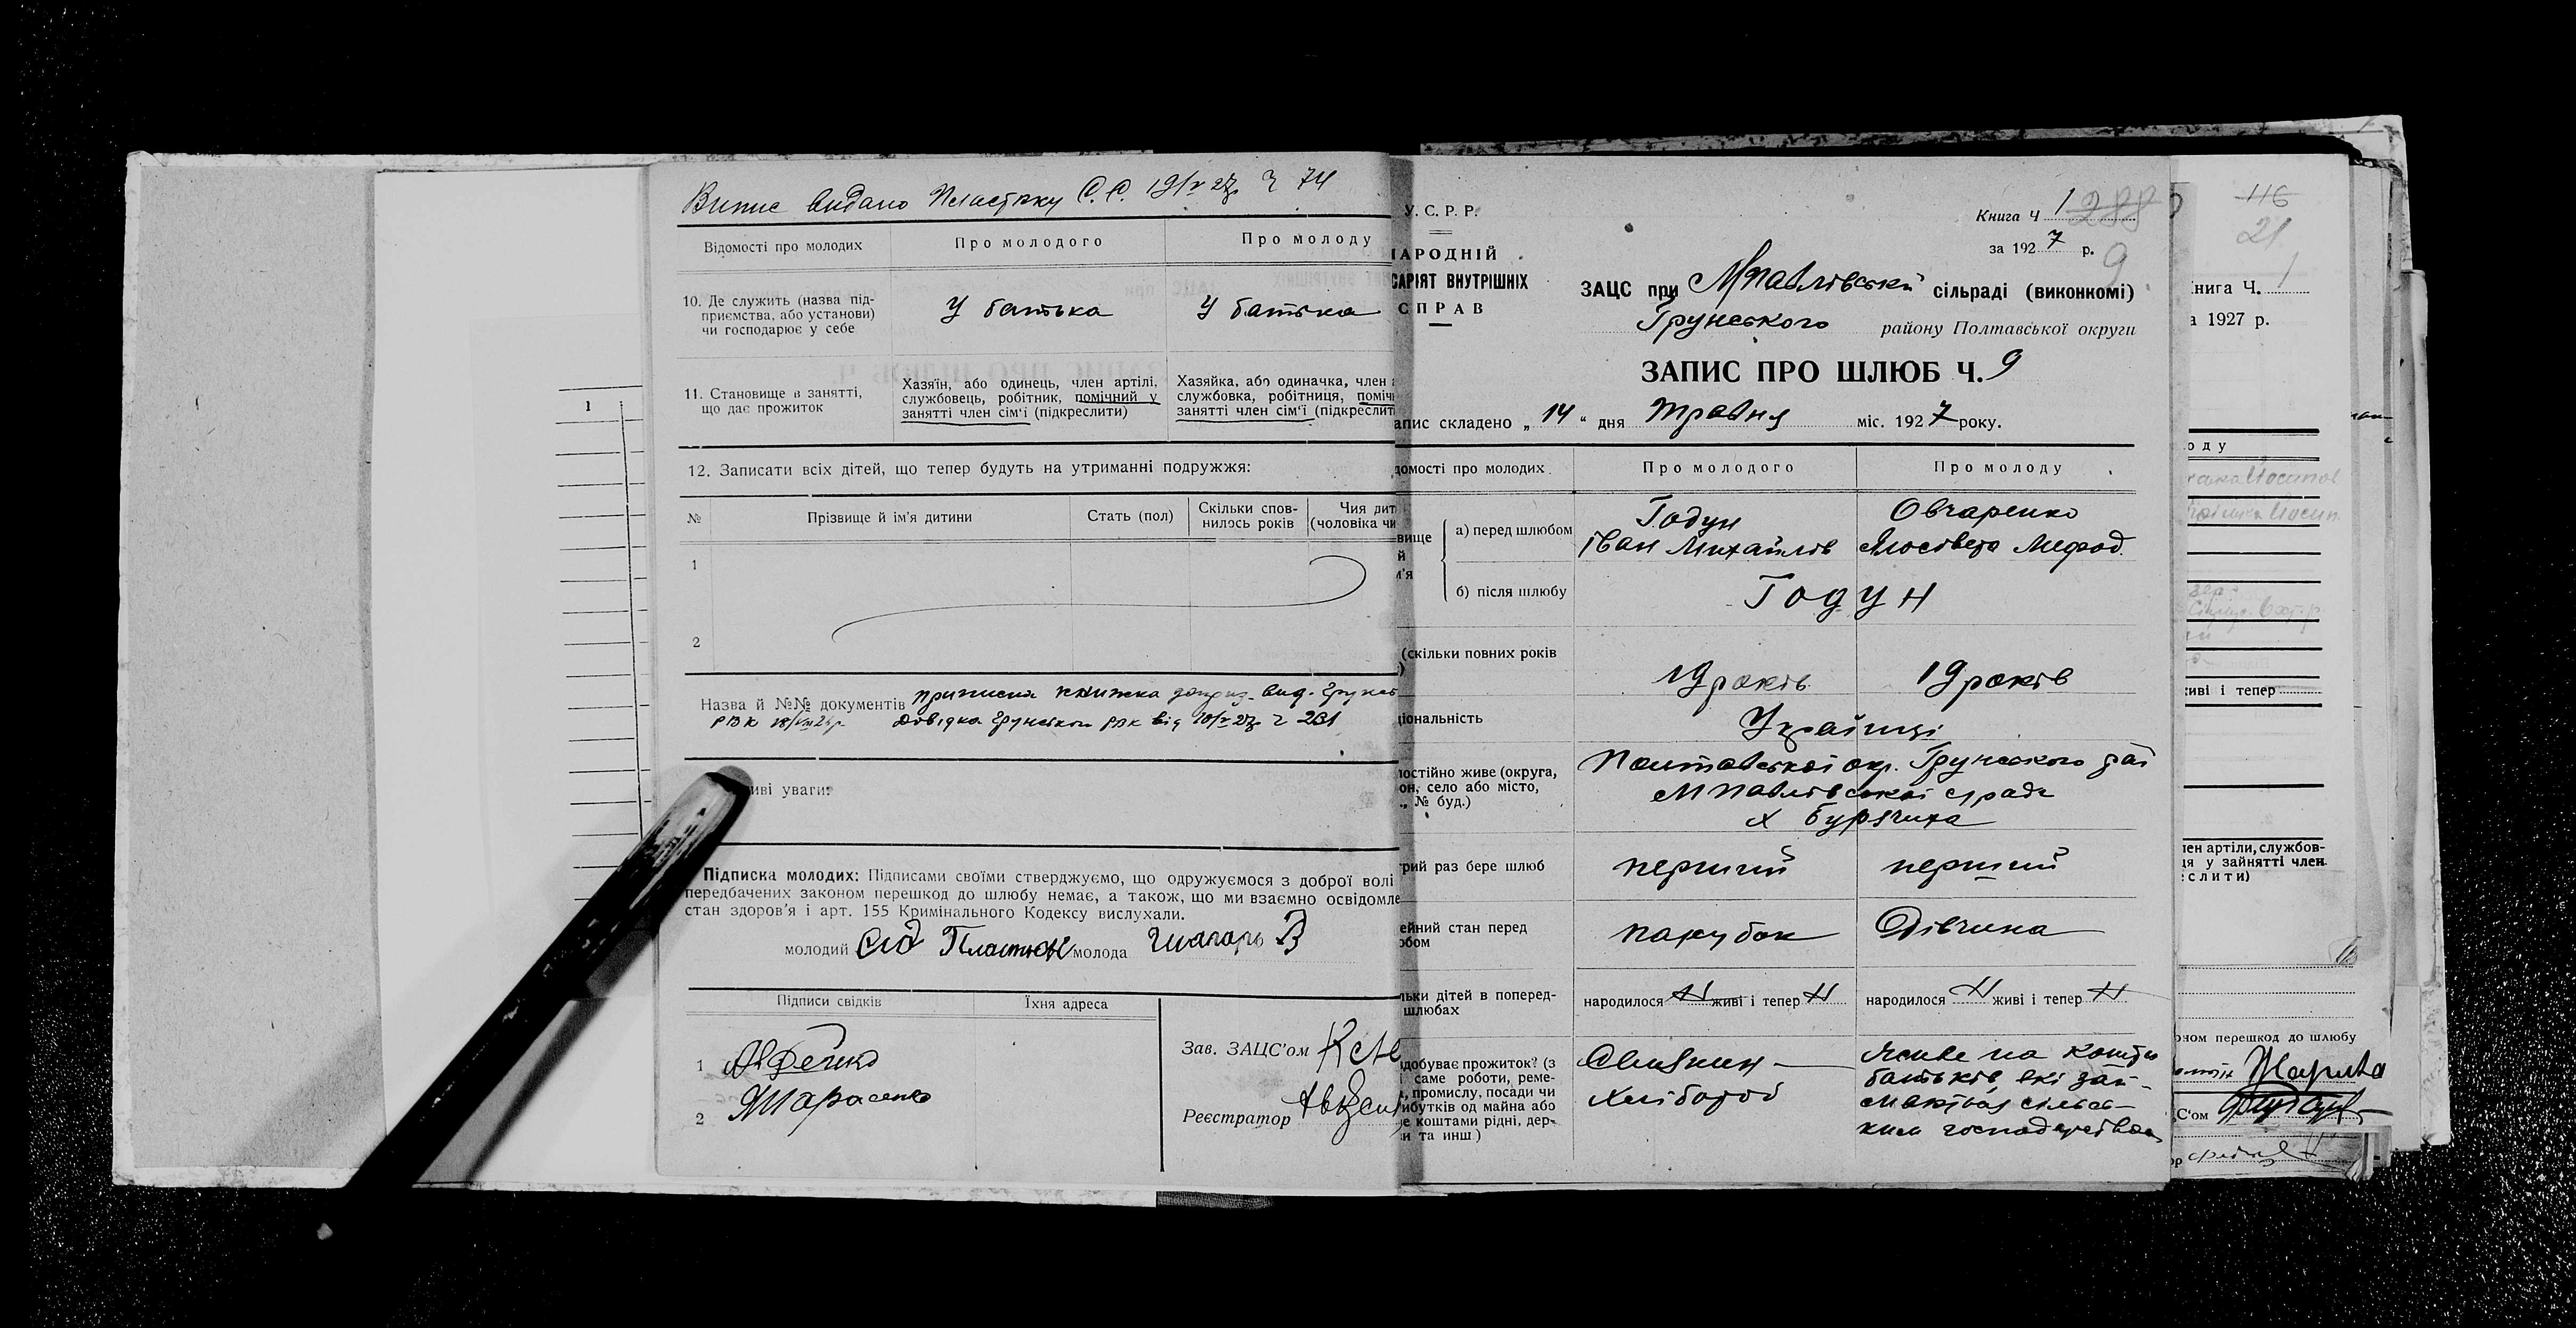 Випис видано Пластуну С.С. 19/V 27р. Ч 74
Відомості про молодих
Про молодого
Про молоду
10. Де служить (назва під-
приємства, або установи)
чи господарює у себе
У батька
У батька
11. Становище в занятті,
що дає прожиток
Хазяїн, або одинець, член артілі,
службовець, робітник, помічний у
занятті член сім'ї (підкреслити)
Хазяйка, або одиначка, член
службовка, робітниця, поміч
занятті член сім'ї (підкреслит
12. Записати всіх дітей, що тепер будуть на утриманні подружжя:
№
Прізвище й ім'я дитини
Стать (пол)
Скільки спов-
нилось років
Чия дит
(чоловіка чи
1
2
Назва й №№ документів приписна книжка вид. Грунськ
РВК довідка Грунського РВК від 10/V 27р. Ч 231
иві уваги:
Підписка молодих: Підписами своїми стверджуємо, що одружуємося з доброї волі
передбачених законом перешкод до шлюбу немає, а також, що ми взаємно освідомле
стан здоров'я і арт. 155 Кримінального Кодексу вислухали.
молодий Пластун молода Шагарь В
Підписи свідків
Їхня адреса
1
2 Тарасенко
Зав. ЗАЦС'ом
Реєстратор
У. С. Р. Р.
АРОДНІЙ
САРІЯТ ВНУТРІШНІХ
СПРАВ
Книга Ч 1 288
за 1927 р. 9
ЗАЦС при МПавлівській сільраді (виконкомі)
Грунського району Полтавської округи
ЗАПИС ПРО ШЛЮБ Ч. 9
апис складено „14" дня Травня міс. 1927 року.
домості про молодих
Про молодого
Про молоду
вище
й
м'я
а) перед шлюбом
Годун
Іван Михайлів
Овчаренко
Єлисівета Мефод.
б) після шлюбу
Годун
(скільки повних років
19 років
19 років
ціональність
Українці
постійно живе (округа,
он, село або місто,
., № буд.)
Полтавської окр. Грунського рай
МПавлівської сради
х Бурячиха
трий раз бере шлюб
перший
перший
ейний стан перед
юбом
парубок
Дівчина
льки дітей в поперед-
шлюбах
народилося Н живі і тепер Н
народилося Н живі і тепер Н
здобуває прожиток? (з
і саме роботи, реме-
, промислу, посади чи
ибутків од майна або
е коштами рідні, дер-
и та инш)
Селянин —
Хлібороб
живе на кошти
батьків, які зай-
маються сільсь-
ким господарством
116
21
нига Ч. 1
а 1927 р.
оду
иві і тепер
лен артіли, службов-
ця у зайнятті член
слити)
оном перешкод до шлюбу
С'ом
ор
1